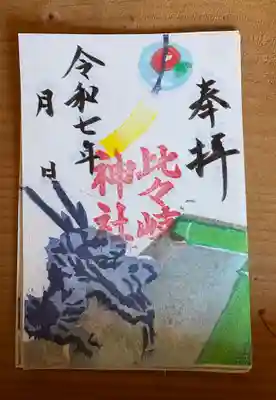 奉拝
此々岐
神社
令和七年
月
日